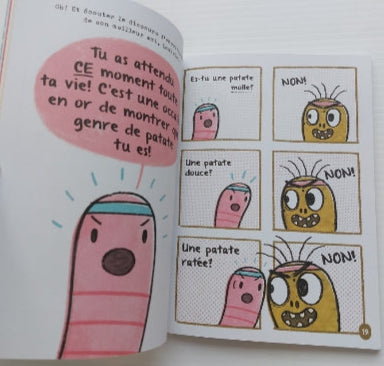 Oh! Et écouter le discours
de son meilleur ami,
Tu as attendu
CE moment toute
ta vie! C'est une
en or de montrer
genre de patate
tu es!
Es-tu une patate
molle?
NON!
Une patate
douce?
NON!
Une patate
ratée?
NON!
19